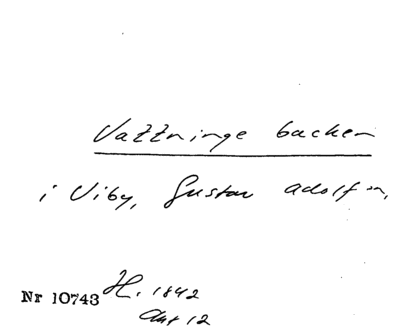 Vattninge backen
i Viby, Gustav Adolf
Nr 10743 H. 1842
12